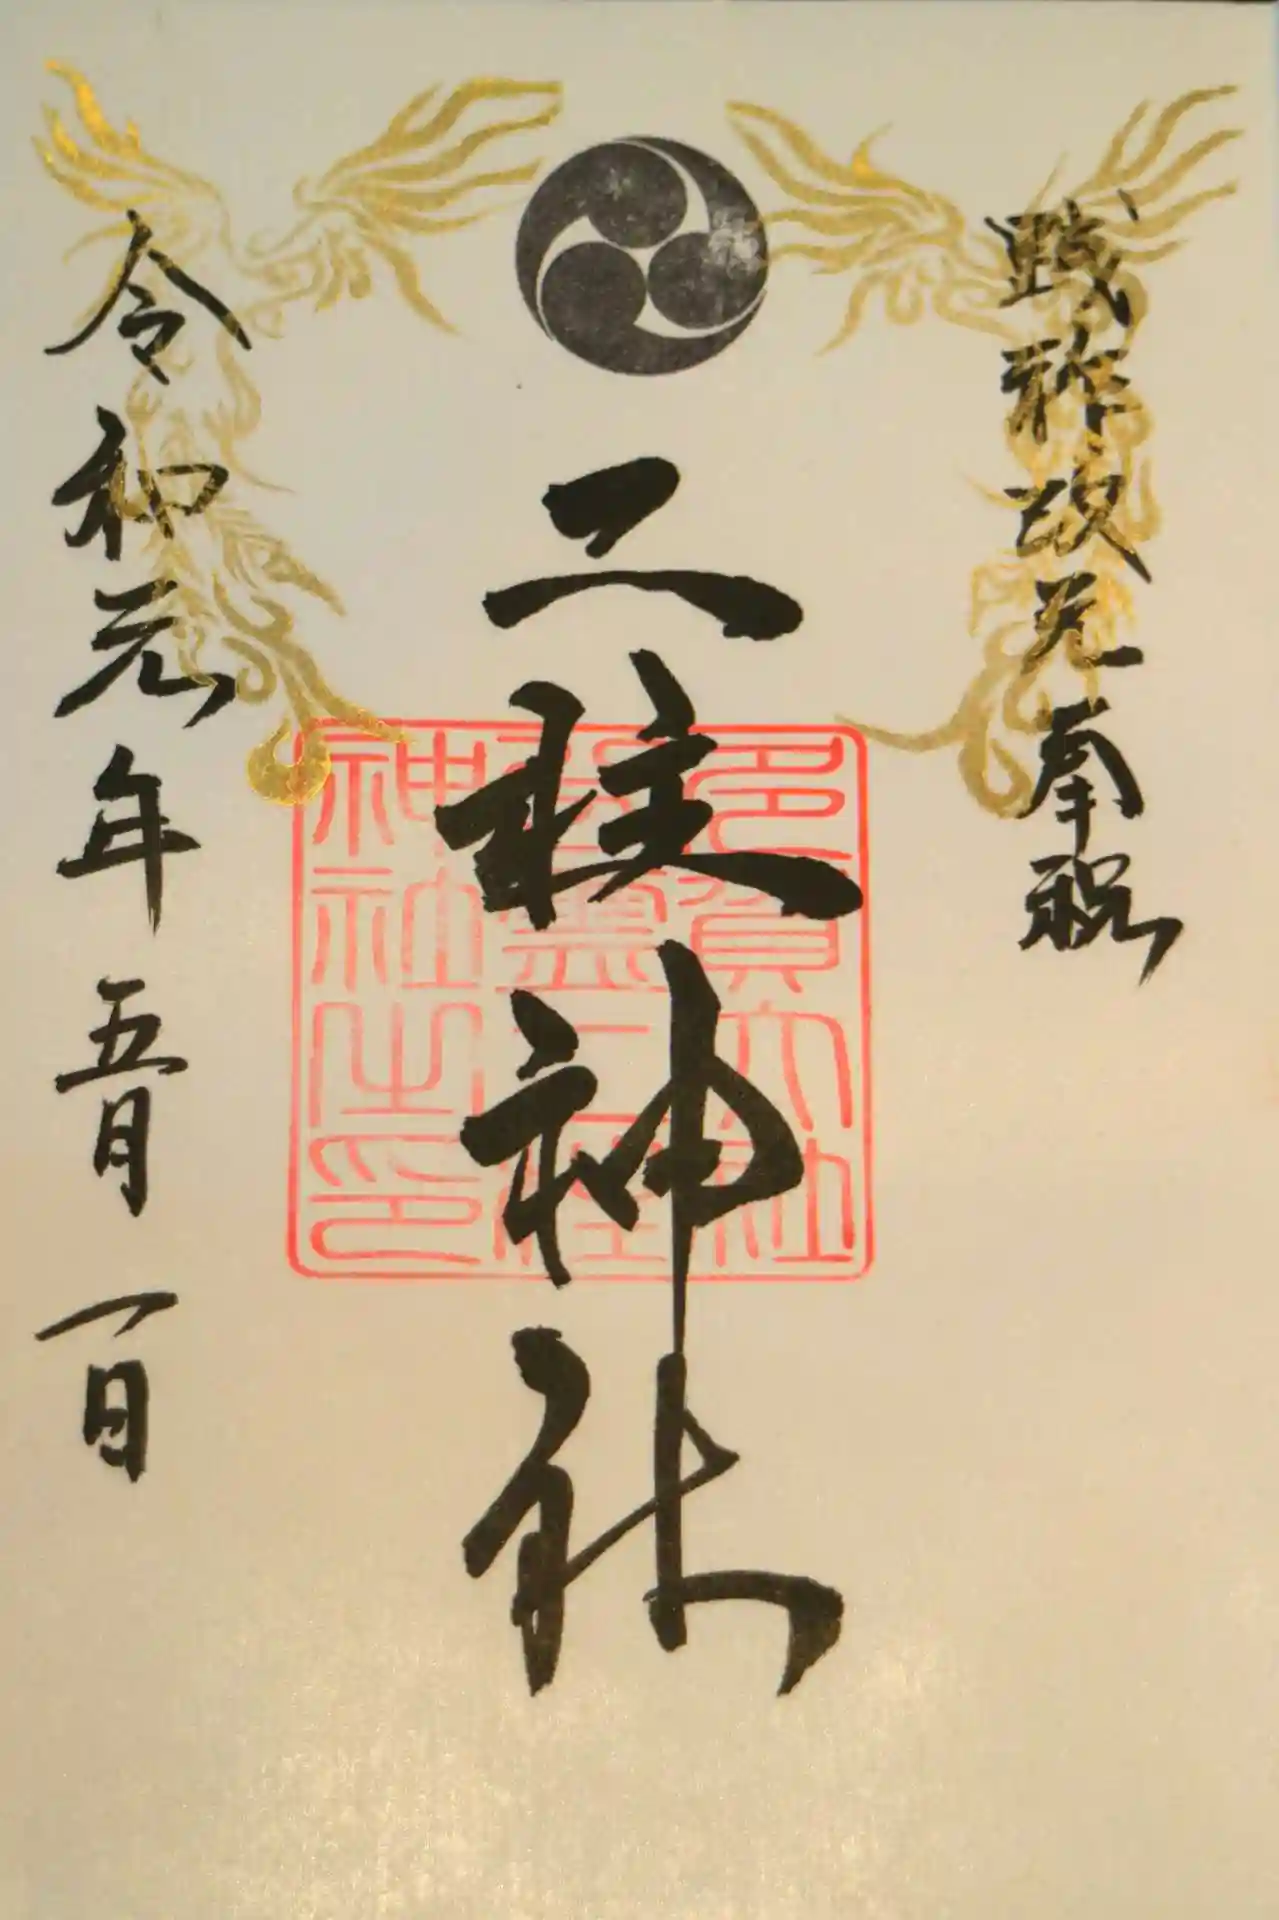 践祚改元奉祝
二柱神社
多賀大社
分霊二柱
神社之印
令和元年五月一日